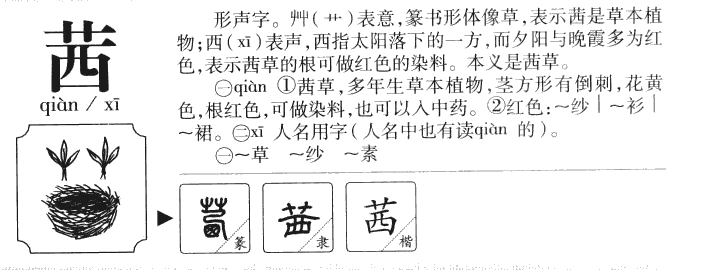 茜
qiàn / xī
形声字。艸(艹)表意,篆书形体像草,表示茜是草本植
物;西(xī)表声,西指太阳落下的一方,而夕阳与晚霞多为红
色,表示茜草的根可做红色的染料。本义是茜草。
㊀qiàn ①茜草,多年生草本植物,茎方形有倒刺,花黄
色,根红色,可做染料,也可以入中药。②红色:～纱｜～衫｜
～裙。㊁xī 人名用字(人名中也有读qiàn 的)。
㊀～草 ～纱 ～素
茜 篆
茜 隶
茜 楷